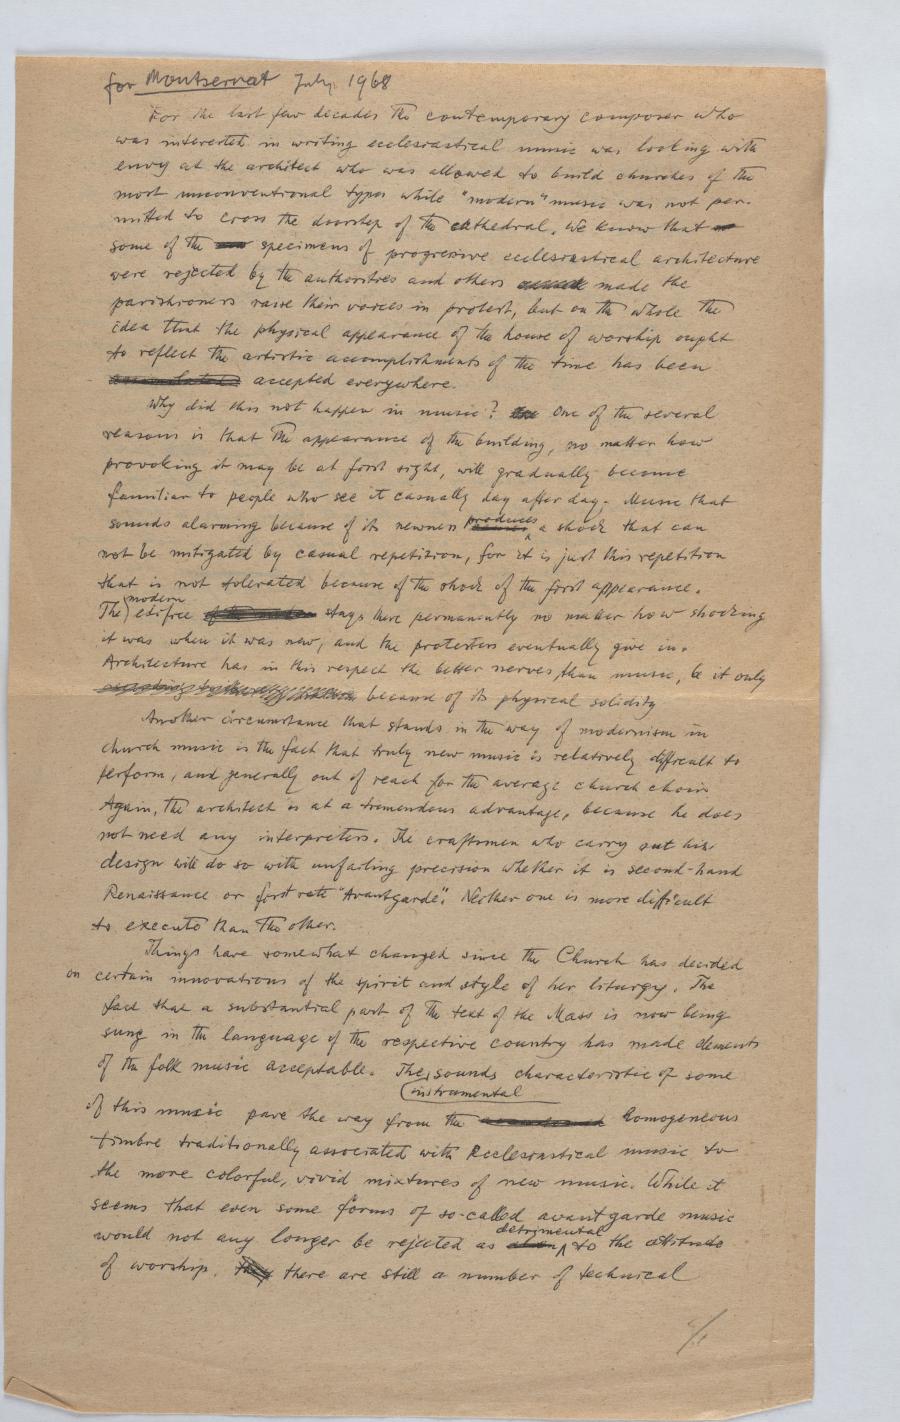 for Montserrat July 1968
For the last few decades the contemporary composer who
was interested in writing ecclesiastical music was looking with
envy at the architect who was allowed to build churches of the
most unconventional types while "modern" music was not per-
mitted to cross the doorstep of the cathedral. We know that
some of the specimens of progressive ecclesiastical architecture
were rejected by the authorities and others made the
parishioners raise their voices in protest, but on the whole the
idea that the physical appearance of the house of worship ought
to reflect the artistic accomplishments of the time has been
accepted everywhere.
Why did this not happen in music? One of the several
reasons is that the appearance of the building, no matter how
provoking it may be at first sight, will gradually become
familiar to people who see it casually day after day. Music that
sounds alarming because of its newness produces a shock that can
not be mitigated by casual repetition, for it is just this repetition
that is not tolerated because of the shock of the first appearance.
The modern edifice stays there permanently no matter how shocking
it was when it was new, and the protesters eventually give in.
Architecture has in this respect the better nerves than music, be it only
because of its physical solidity
Another circumstance that stands in the way of modernism in
church music is the fact that truly new music is relatively difficult to
perform, and generally out of reach for the average church choir.
Again, the architect is at a tremendous advantage, because he does
not need any interpreters. The craftsmen who carry out his
design will do so with unfailing precision whether it is second-hand
Renaissance or first rate "Avantgarde". Neither one is more difficult
to execute than the other.
Things have somewhat changed since the Church has decided
on certain innovations of the spirit and style of her liturgy. The
fact that a substantial part of the text of the Mass is now being
sung in the language of the respective country has made elements
of the folk music acceptable. The instrumental sounds characteristic of some
of this music pave the way from the homogeneous
timbre traditionally associated with Ecclesiastical music to
the more colorful, vivid mixtures of new music. While it
seems that even some forms of so-called avantgarde music
would not any longer be rejected as detrimental to the attitude
of worship, there are still a number of technical